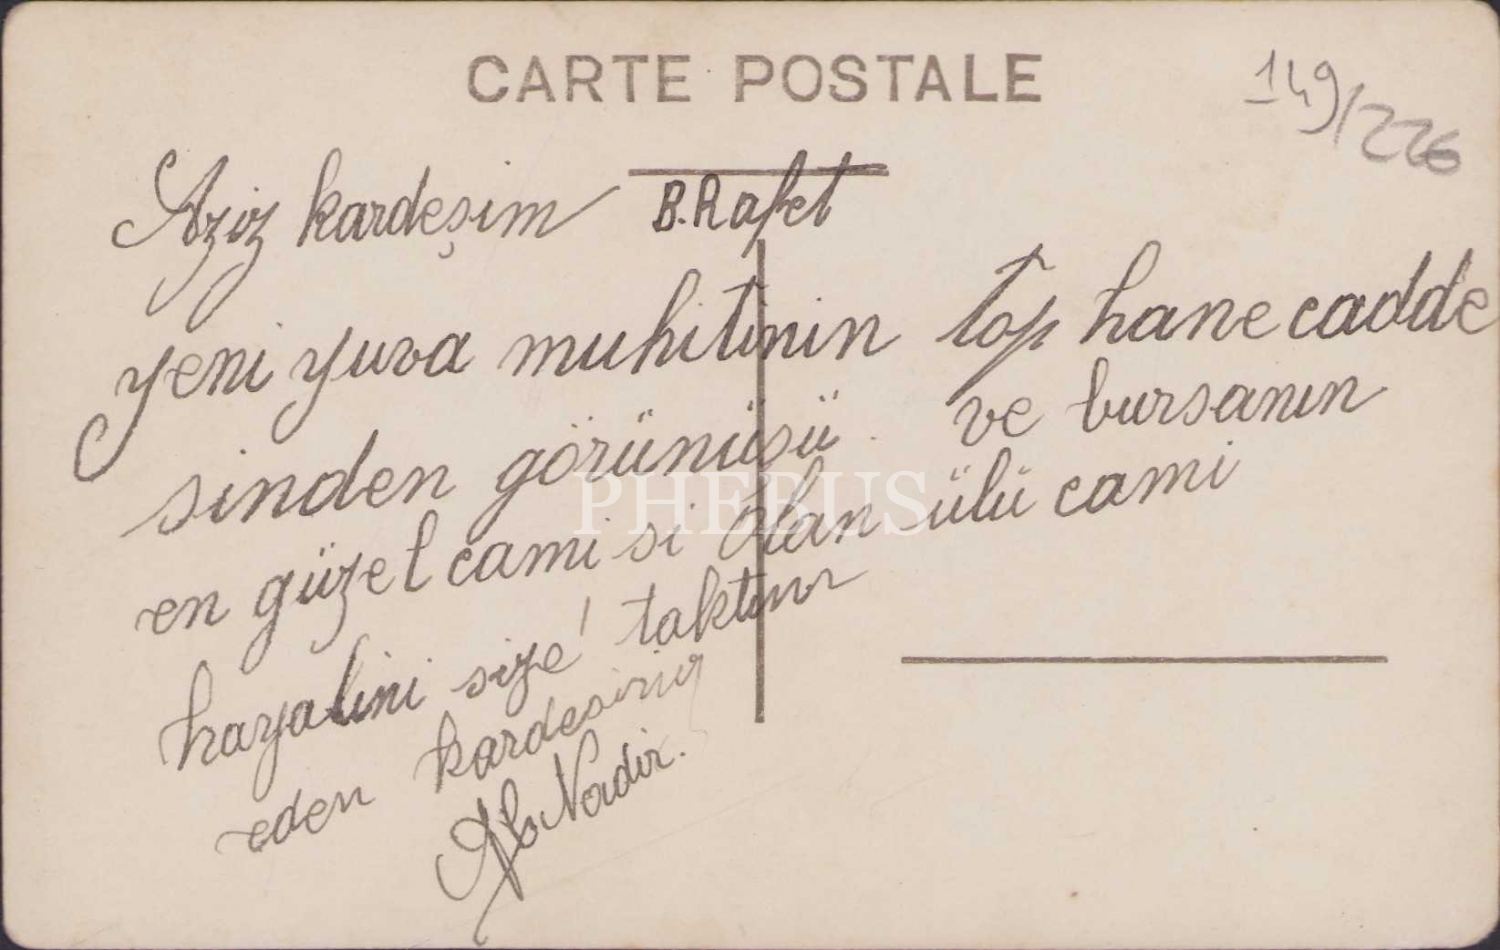 CARTE POSTALE
149/226
Aziz kardeşim B. Rafet
yeni yuva muhitinin top hane cadde
sinden görünüsü. ve bursanın
en güzel cami si olan ülü cami
hayalini size taktim
eden kardesiniz
Nadir.
PHEBUS